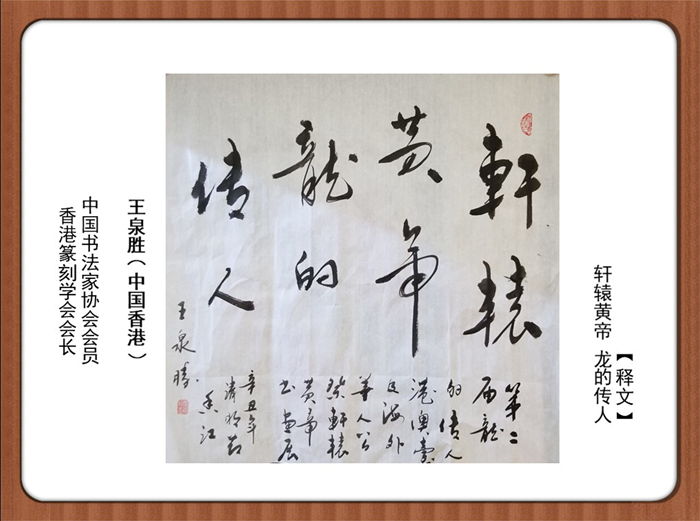 【释文】
轩辕黄帝 龙的传人
軒轅
黄帝
龍的
传人
第二
届龍
的传人
港澳臺
及海外
華人公
祭軒轅
黄帝
书画展
辛丑年
清明节
香江
王泉勝
王泉胜（中国香港）
中国书法家协会会员
香港篆刻学会会长